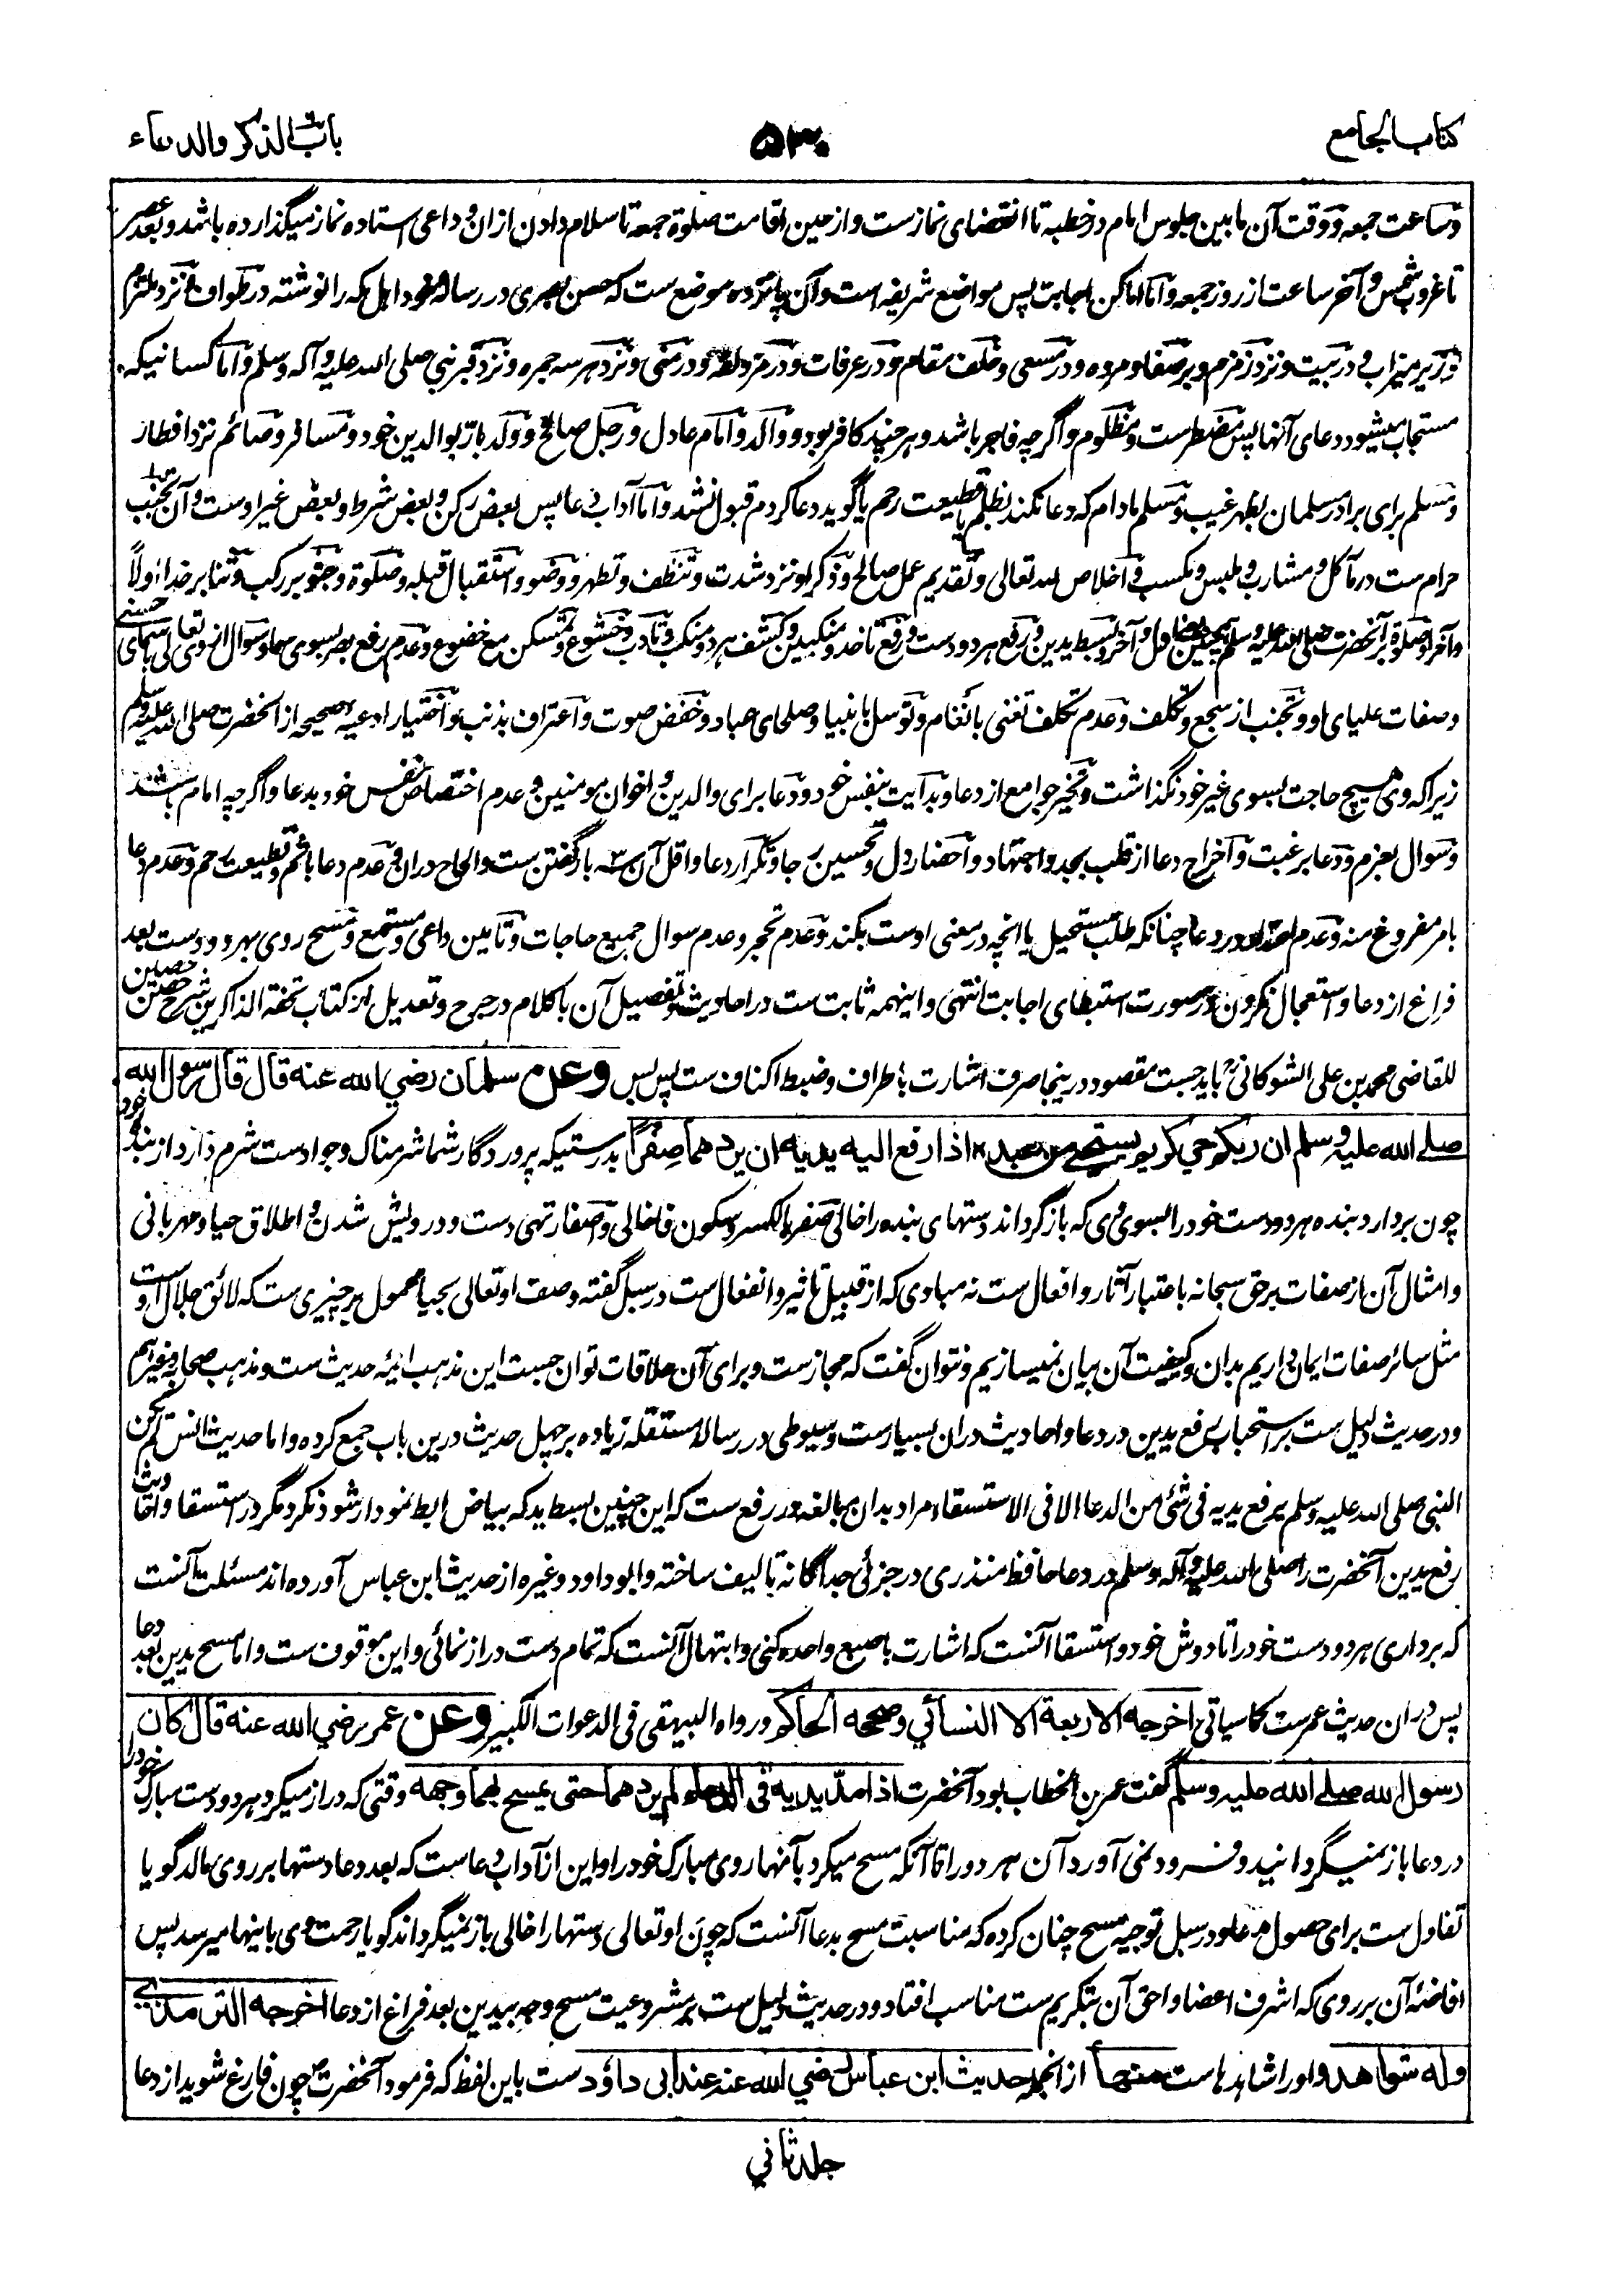 کتاب الجامع
۵۳۰
باب الذکر والدعاء
وساعت جمعه ووقت آن مابین جلوس امام در خطبه تا انقضای نمازست واز حین اقامت صلوة جمعه تا سلام دادن ازان وداعی استاده نماز میگذارده باشد وبعد عصر
تا غروب شمس وآخر ساعت از روز جمعه واما اماکن اجابت پس مواضع شریفه است وآن پانزده موضع ست که حسن بصری در رساله خود اهل مکه را نوشته در طواف ونزد ملتزم
وزیر میزاب ودر بیت ونزد زمزم وبر صفا ومروه ودر مسعی وخلف مقام ودر عرفات ودر مزدلفه ودر منی ونزد هر سه جمره ونزد قبر نبی صلی الله علیه وآله وسلم واما کسانیکه
مستجاب میشود دعای آنها پس مضطرست ومظلوم واگرچه فاجر باشد وهر چند کافر بود ووالد وامام عادل ورجل صالح وولد بار بوالدین خود ومسافر وصائم نزد افطار
ومسلم برای برادر مسلمان بظهر غیب ومسلم مادام که دعا نکند بظلم یا قطیعت رحم یا گوید دعا کردم قبول نشد واما آداب دعا پس بعض رکن وبعض شرط وبعض غیر اوست وآن تجنب
حرام ست در مآکل ومشارب وملبس ومکسب واخلاص لله تعالی وتقدیم عمل صالح وذکر او نزد شدت وتنظف وتطهر ووضو واستقبال قبله وصلوة وجثو بر رکب وثنا بر خدا اولاً
وآخراً وصلوة بر آنحضرت صلی الله علیه وسلم همچنین اول وآخر وبسط یدین ورفع هر دو دست ورفع تا حذو منکبین وکشف هر دو منکب وتأدب وخشوع وتمسکن مع خضوع وعدم رفع بصر بسوی سما وسوال از وی تعالی باسمای حسنی
وصفات علیای او وتجنب از سجع وتکلف وعدم تکلف تغنی بانغام وتوسل بانبیا وصلحای عباد وخفض صوت واعتراف بذنب واختیار ادعیه صحیحه از آنحضرت صلی الله علیه وسلم
زیرا که وی هیچ حاجت بسوی غیر خود نگذاشت وتخیر جوامع از دعا وبدایت بنفس خود ودعا برای والدین واخوان مومنین وعدم اختصاص نفس خود بدعا واگرچه امام باشد
وسوال بعزم ودعا برغبت واخراج دعا از قلب بجد واجتهاد واحضار دل وتحسین رجا وتکرار دعا واقل آن سه بار گفتن ست والحاح دران وعدم دعا باثم وقطیعت رحم وعدم دعا
بامر مفروغ منه وعدم اعتدا در دعا چنانکه طلب مستحیل یا انچه در معنی اوست بکند وعدم تحجر وعدم سوال جمیع حاجات وتأمین داعی ومستمع ومسح روی بهر دو دست بعد
فراغ از دعا واستعجال نکردن ودر صورت استبطای اجابت انتهی واینهمه ثابت ست در احادیث وتفصیل آن با کلام در جرح وتعدیل از کتاب تحفة الذاکرین شرح حصن حصین
للقاضی محمد بن علی الشوکانی باید جست مقصود درینجا صرف اشارت باطراف وضبط اکناف ست پس بس وعن سلمان رضي الله عنه قال قال رسول الله
صلے الله علیه وسلم ان ربکم حي کریم یستحیي من عبده اذا رفع الیه یدیه ان یردهما صفرًا بدرستیکه پروردگار شما شرمناک وجوادست شرم دارد از بنده خود
چون بردارد بنده هر دو دست خود را بسوی وی که بازگرداند دستهای بنده را خالی صفر بالکسر وسکون فا خالی واصفار تهی دست ودرویش شدن واطلاق حیا ومهربانی
وامثال آن از صفات بر حق سبحانه باعتبار آثار وافعال ست نه مبادی که از قبیل تاثیر وانفعال ست در سبل گفته وصف او تعالی بحیا محمول بر چیزی ست که لائق جلال اوست
مثل سائر صفات ایمان داریم بدان وکیفیت آن بیان نمیسازیم ونتوان گفت که مجازست وبرای آن علاقات توان جست این مذهب ائمه حدیث ست ومذهب صحابه وغیرهم
ودر حدیث دلیل ست بر استحباب رفع یدین در دعا واحادیث دران بسیارست وسیوطی در رساله مستقله زیاده بر چهل حدیث درین باب جمع کرده واما حدیث انس لم یکن
النبی صلی الله علیه وسلم یرفع یدیه فی شئ من الدعا الا فی الاستسقاء مراد بدان مبالغه در رفع ست که این چنین بسط ید که بیاض ابط نمودار شود نکرد مگر در استسقا واحادیث
رفع یدین آنحضرت را صلی الله علیه وآله وسلم در دعا حافظ منذری در جزئی جداگانه تالیف ساخته وابو داود وغیره از حدیث ابن عباس آورده اند مسئلت آنست
که برداری هر دو دست خود را تا دوش خود واستسقا آنست که اشارت باصبع واحده کنی وابتهال آنست که تمام دست دراز نمائی واین موقوف ست واما مسح یدین بعد دعا
پس دران حدیث عمرست کما سیاتی اخرجه الاربعة الا النسائي وصححه الحاکم ورواه البیهقی فی الدعوات الکبیر وعن عمر رضي الله عنه قال کان
رسول الله صلے الله علیه وسلم گفت عمر بن الخطاب بود آنحضرت اذا مد یدیه فی الدعاء لم یردهما حتی یمسح بهما وجهه وقتی که دراز میکرد هر دو دست مبارک خود را
در دعا باز نمیگردانید وفرود نمی آورد آن هر دو را تا آنکه مسح میکرد بآنها روی مبارک خود را واین از آداب دعاست که بعد دعا دستها بر روی مالد گویا
تفاول ست برای حصول مدعا ودر سبل توجیه مسح چنان کرده که مناسبت مسح بدعا آنست که چون او تعالی دستها را خالی باز نمیگرداند گویا رحمت وی باینها میرسد پس
افاضهٔ آن بر روی که اشرف اعضا واحق آن بتکریم ست مناسب افتاد ودر حدیث دلیل ست بر مشروعیت مسح وجه بیدین بعد فراغ از دعا اخرجه الترمذي
وله شواهد واو را شاهدهاست منها ازانجمله حدیث ابن عباس رضي الله عنه عند ابی داؤد ست باین لفظ که فرمود آنحضرت چون فارغ شوید از دعا
جلد ثاني